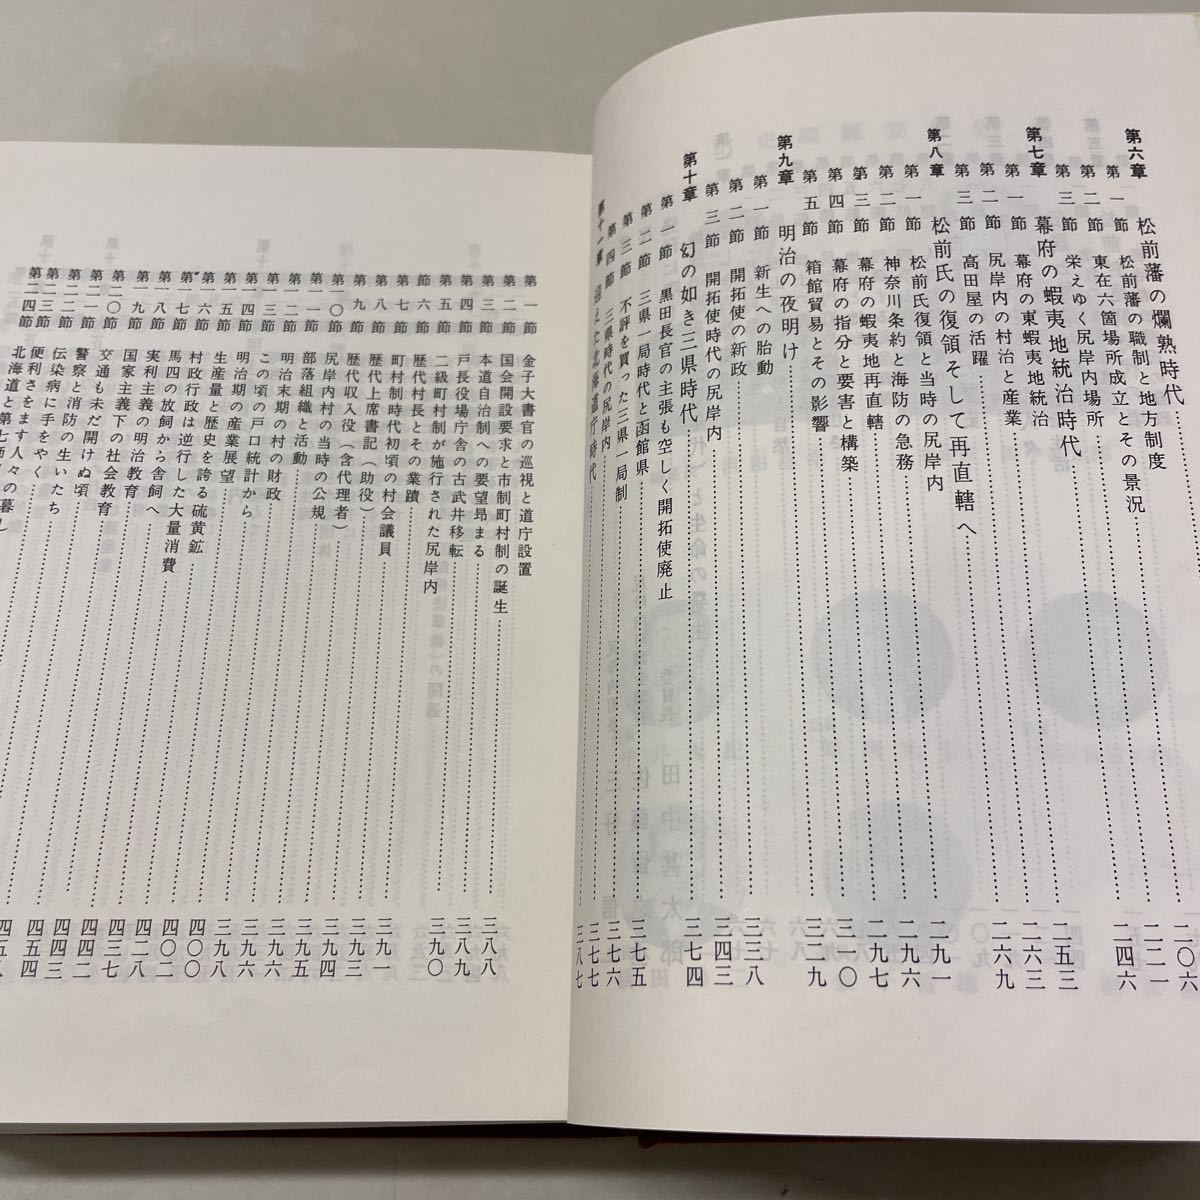 第六章 松前藩の爛熟時代
第一節 松前藩の職制と地方制度 二〇六
第二節 東在六箇場所成立とその景況 二二一
第三節 栄えゆく尻岸内場所 二四六
第七章 幕府の蝦夷地統治時代
第一節 幕府の東蝦夷地統治 二五三
第二節 尻岸内の村治と産業 二六三
第三節 高田屋の活躍 二六九
第八章 松前氏の復領そして再直轄へ
第一節 松前氏復領と当時の尻岸内 二九一
第二節 神奈川条約と海防の急務 二九六
第三節 幕府の蝦夷地再直轄 二九七
第四節 幕府の指分と要害と構築 三一〇
第五節 箱館貿易とその影響 三二九
第九章 明治の夜明け
第一節 新生への胎動 三三八
第二節 開拓使の新政
第三節 開拓使時代の尻岸内 三四三
第十章 幻の如き三県時代
第一節 黒田長官の主張も空しく開拓使廃止 三七四
第二節 三県一局時代と函館県 三七五
第三節 不評を買った三県一局制 三七六
第四節 三県時代の尻岸内 三七七
第十一章 迎えた北海道庁時代 三八七
第一節 金子大書官の巡視と道庁設置
第二節 国会開設要求と市制町村制の誕生 三八八
第三節 本道自治制への要望昂まる 三八九
第四節 戸長役場庁舎の古武井移転
第五節 二級町村制が施行された尻岸内 三九〇
節六節 歴代村長とその業蹟
第七節 町村制時代初頃の村会議員 三九一
第八節 歴代上席書記（助役）
第九節 歴代収入役（含代理者） 三九三
第一〇節 尻岸内村の当時の公規 三九四
第一一節 部落組織と活動 三九五
第一二節 明治末期の村の財政
第一三節 この頃の戸口統計から 三九六
第一四節 明治期の産業展望 三九六
第一五節 生産量と歴史を誇る硫黄鉱 三九八
第一六節 村政行政は逆行した大量消費 四〇〇
第一七節 馬四の放飼から舎飼へ 四〇二
第一八節 実利主義の明治教育 四二八
第一九節 国家主義下の社会教育 四三七
第二〇節 交通も未だ開けぬ頃 四四二
第二一節 警察と消防の生いたち
第二二節 伝染病に手をやく 四四三
第二三節 便利さをます人々の暮し 四五四
第二四節 北海道と第七師